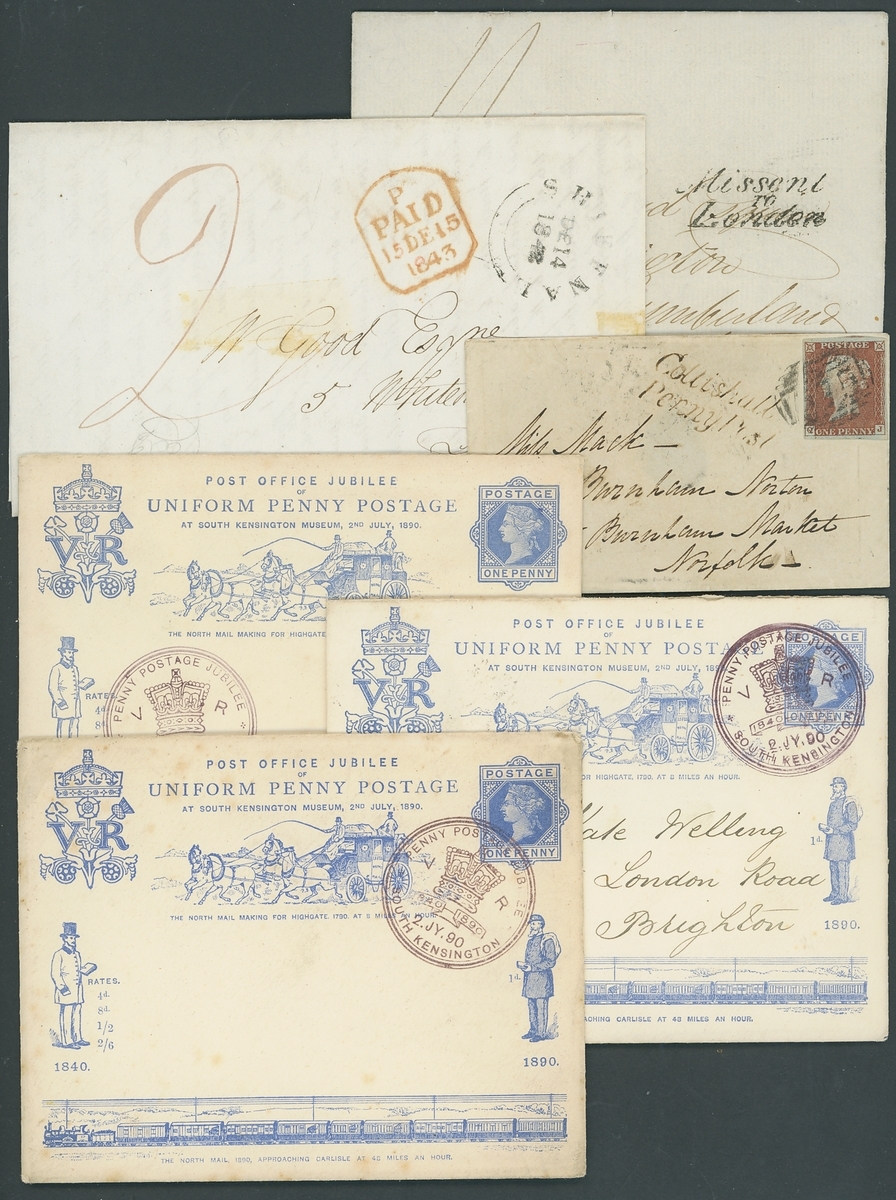 Missent
TO
London
2
P
PAID
15 DE 15
1843
DE 14
W Good Esqre
5
Coltishall
Penny Post
POSTAGE
ONE PENNY
Miss Mack
Burnham Norton
Burnham Market
Norfolk
POST OFFICE JUBILEE
OF
UNIFORM PENNY POSTAGE
AT SOUTH KENSINGTON MUSEUM, 2ND JULY, 1890.
POSTAGE
ONE PENNY
V R
THE NORTH MAIL MAKING FOR HIGHGATE
RATES
4d.
8
PENNY POSTAGE JUBILEE
V R
POST OFFICE JUBILEE
OF
UNIFORM PENNY POSTAGE
AT SOUTH KENSINGTON MUSEUM, 2ND JULY, 189
POSTAGE
ONE PENNY
V R
PENNY POSTAGE JUBILEE
V R
1840
2.JY.90
SOUTH KENSINGTON
FOR HIGHGATE, 1790, AT 8 MILES AN HOUR.
1d.
Kate Welling
London Road
Brighton
1890.
APPROACHING CARLISLE AT 48 MILES AN HOUR.
POST OFFICE JUBILEE
OF
UNIFORM PENNY POSTAGE
AT SOUTH KENSINGTON MUSEUM, 2ND JULY, 1890.
POSTAGE
ONE PENNY
V R
PENNY POSTAGE JUBILEE
V R
1840 1890
2.JY.90
SOUTH KENSINGTON
THE NORTH MAIL MAKING FOR HIGHGATE, 1790, AT 8 MILES AN HOUR.
RATES.
4d.
8d.
1/2
2/6
1d.
1840.
1890.
THE NORTH MAIL, 1890, APPROACHING CARLISLE AT 48 MILES AN HOUR.